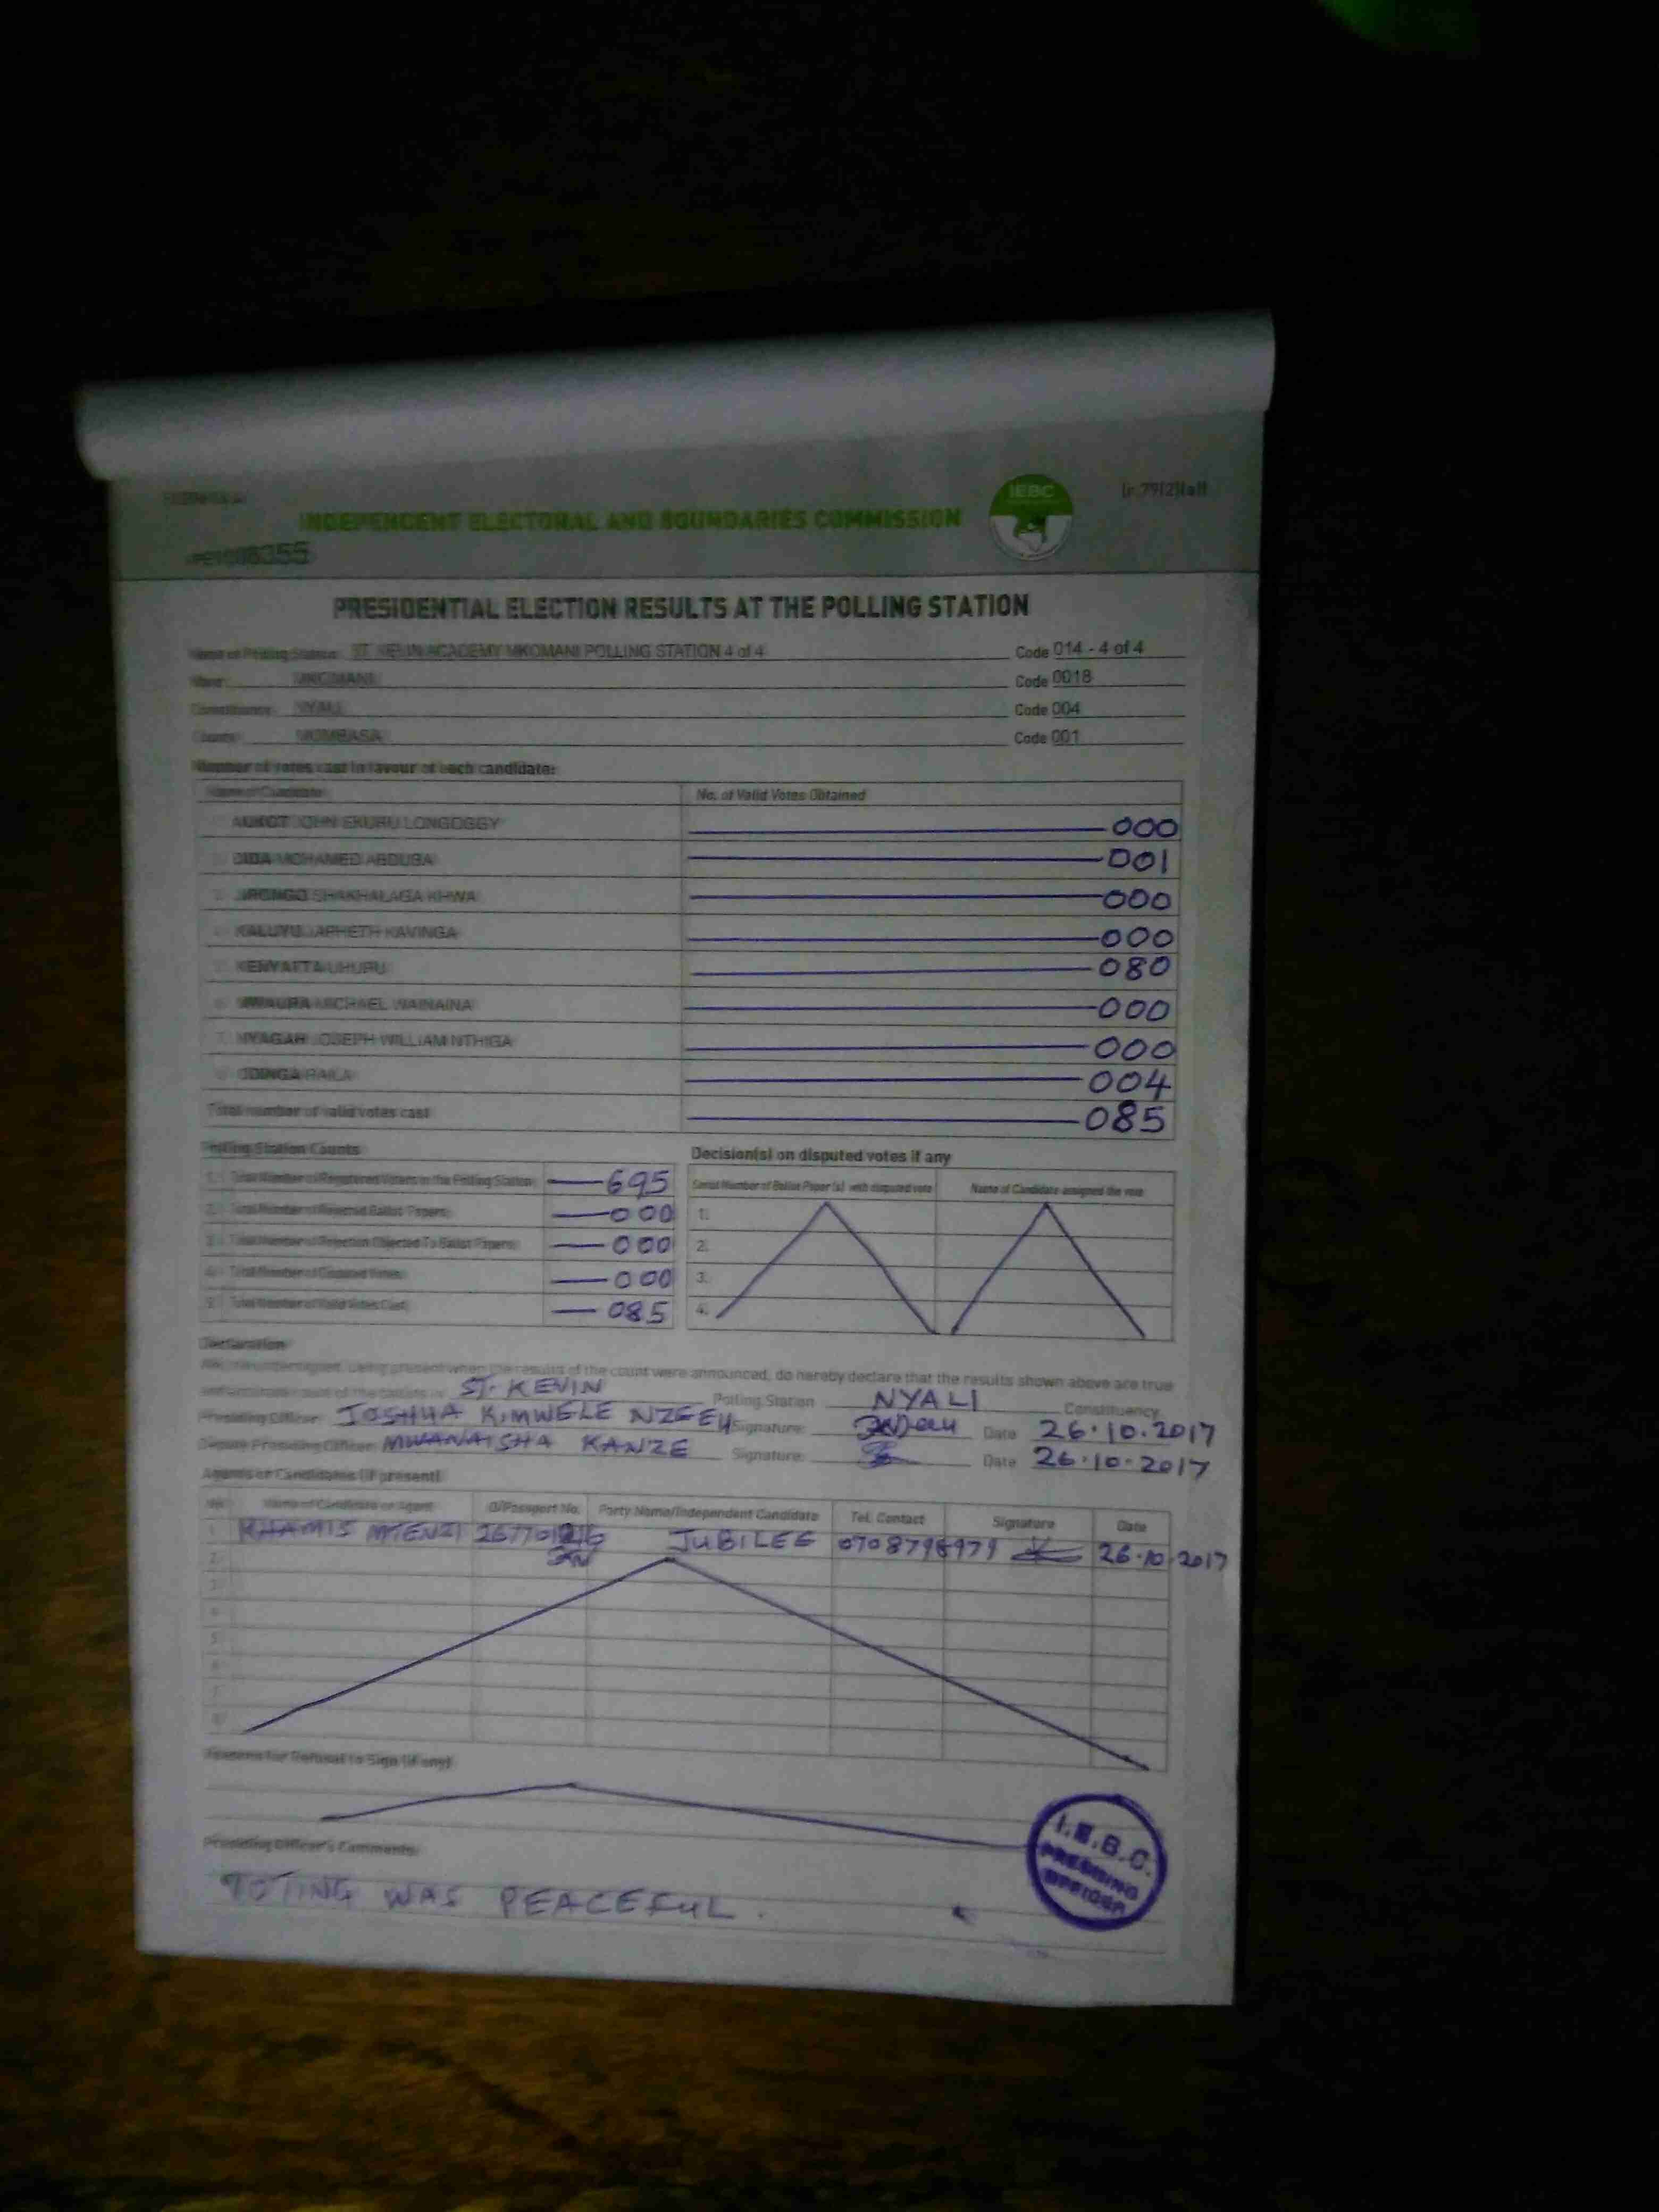 FORM 34A
(r.79(2)(a))
IEBC
INDEPENDENT ELECTORAL AND BOUNDARIES COMMISSION
PRESIDENTIAL ELECTION RESULTS AT THE POLLING STATION
Name of Polling Station: ST. KEVIN ACADEMY MKOMANI POLLING STATION 4 of 4 Code 014 - 4 of 4
Ward: MKOMANI Code 0018
Constituency: NYALI Code 004
County: MOMBASA Code 001
Number of votes cast in favour of each candidate:
Name of Candidate No. of Valid Votes Obtained
1. AUKOT JOHN EKURU LONGOGGY 000
2. DIDA MOHAMED ABDUBA 001
3. JIRONGO SHAKHALAGA KHWA 000
4. KALUYU JAPHETH KAVINGA 000
5. KENYATTA UHURU 080
6. MWAURA MICHAEL WAINAINA 000
7. NYAGAH JOSEPH WILLIAM NTHIGA 000
8. ODINGA RAILA 004
Total number of valid votes cast 085
Polling Station Counts
1. Total Number of Registered Voters in the Polling Station 695
2. Total Number of Rejected Ballot Papers 000
3. Total Number of Rejection Objected To Ballot Papers 000
4. Total Number of Disputed Votes 000
5. Total Number of Valid Votes Cast 085
Decision(s) on disputed votes if any
Serial Number of Ballot Paper (s) with disputed vote Name of Candidate assigned the vote
1.
2.
3.
4.
Declaration
We, the undersigned, being present when the results of the count were announced, do hereby declare that the results shown above are true
and accurate count of the ballots in ST. KEVIN Polling Station NYALI Constituency
Presiding Officer: JOSHUA KIMWELE NZEEU Signature: Date 26.10.2017
Deputy Presiding Officer: MWANAISHA KANZE Signature: Date 26.10.2017
Agents or Candidates (if present)
No. Name of Candidate or Agent ID/Passport No. Party Name/Independent Candidate Tel. Contact Signature Date
1 KHAMIS MTENZI JUBILEE 26.10.2017
2
3
4
5
6
7
8
Reasons for Refusal to Sign (if any)
Presiding Officer's Comments:
VOTING WAS PEACEFUL.
I.E.B.C.
PRESIDING
OFFICER